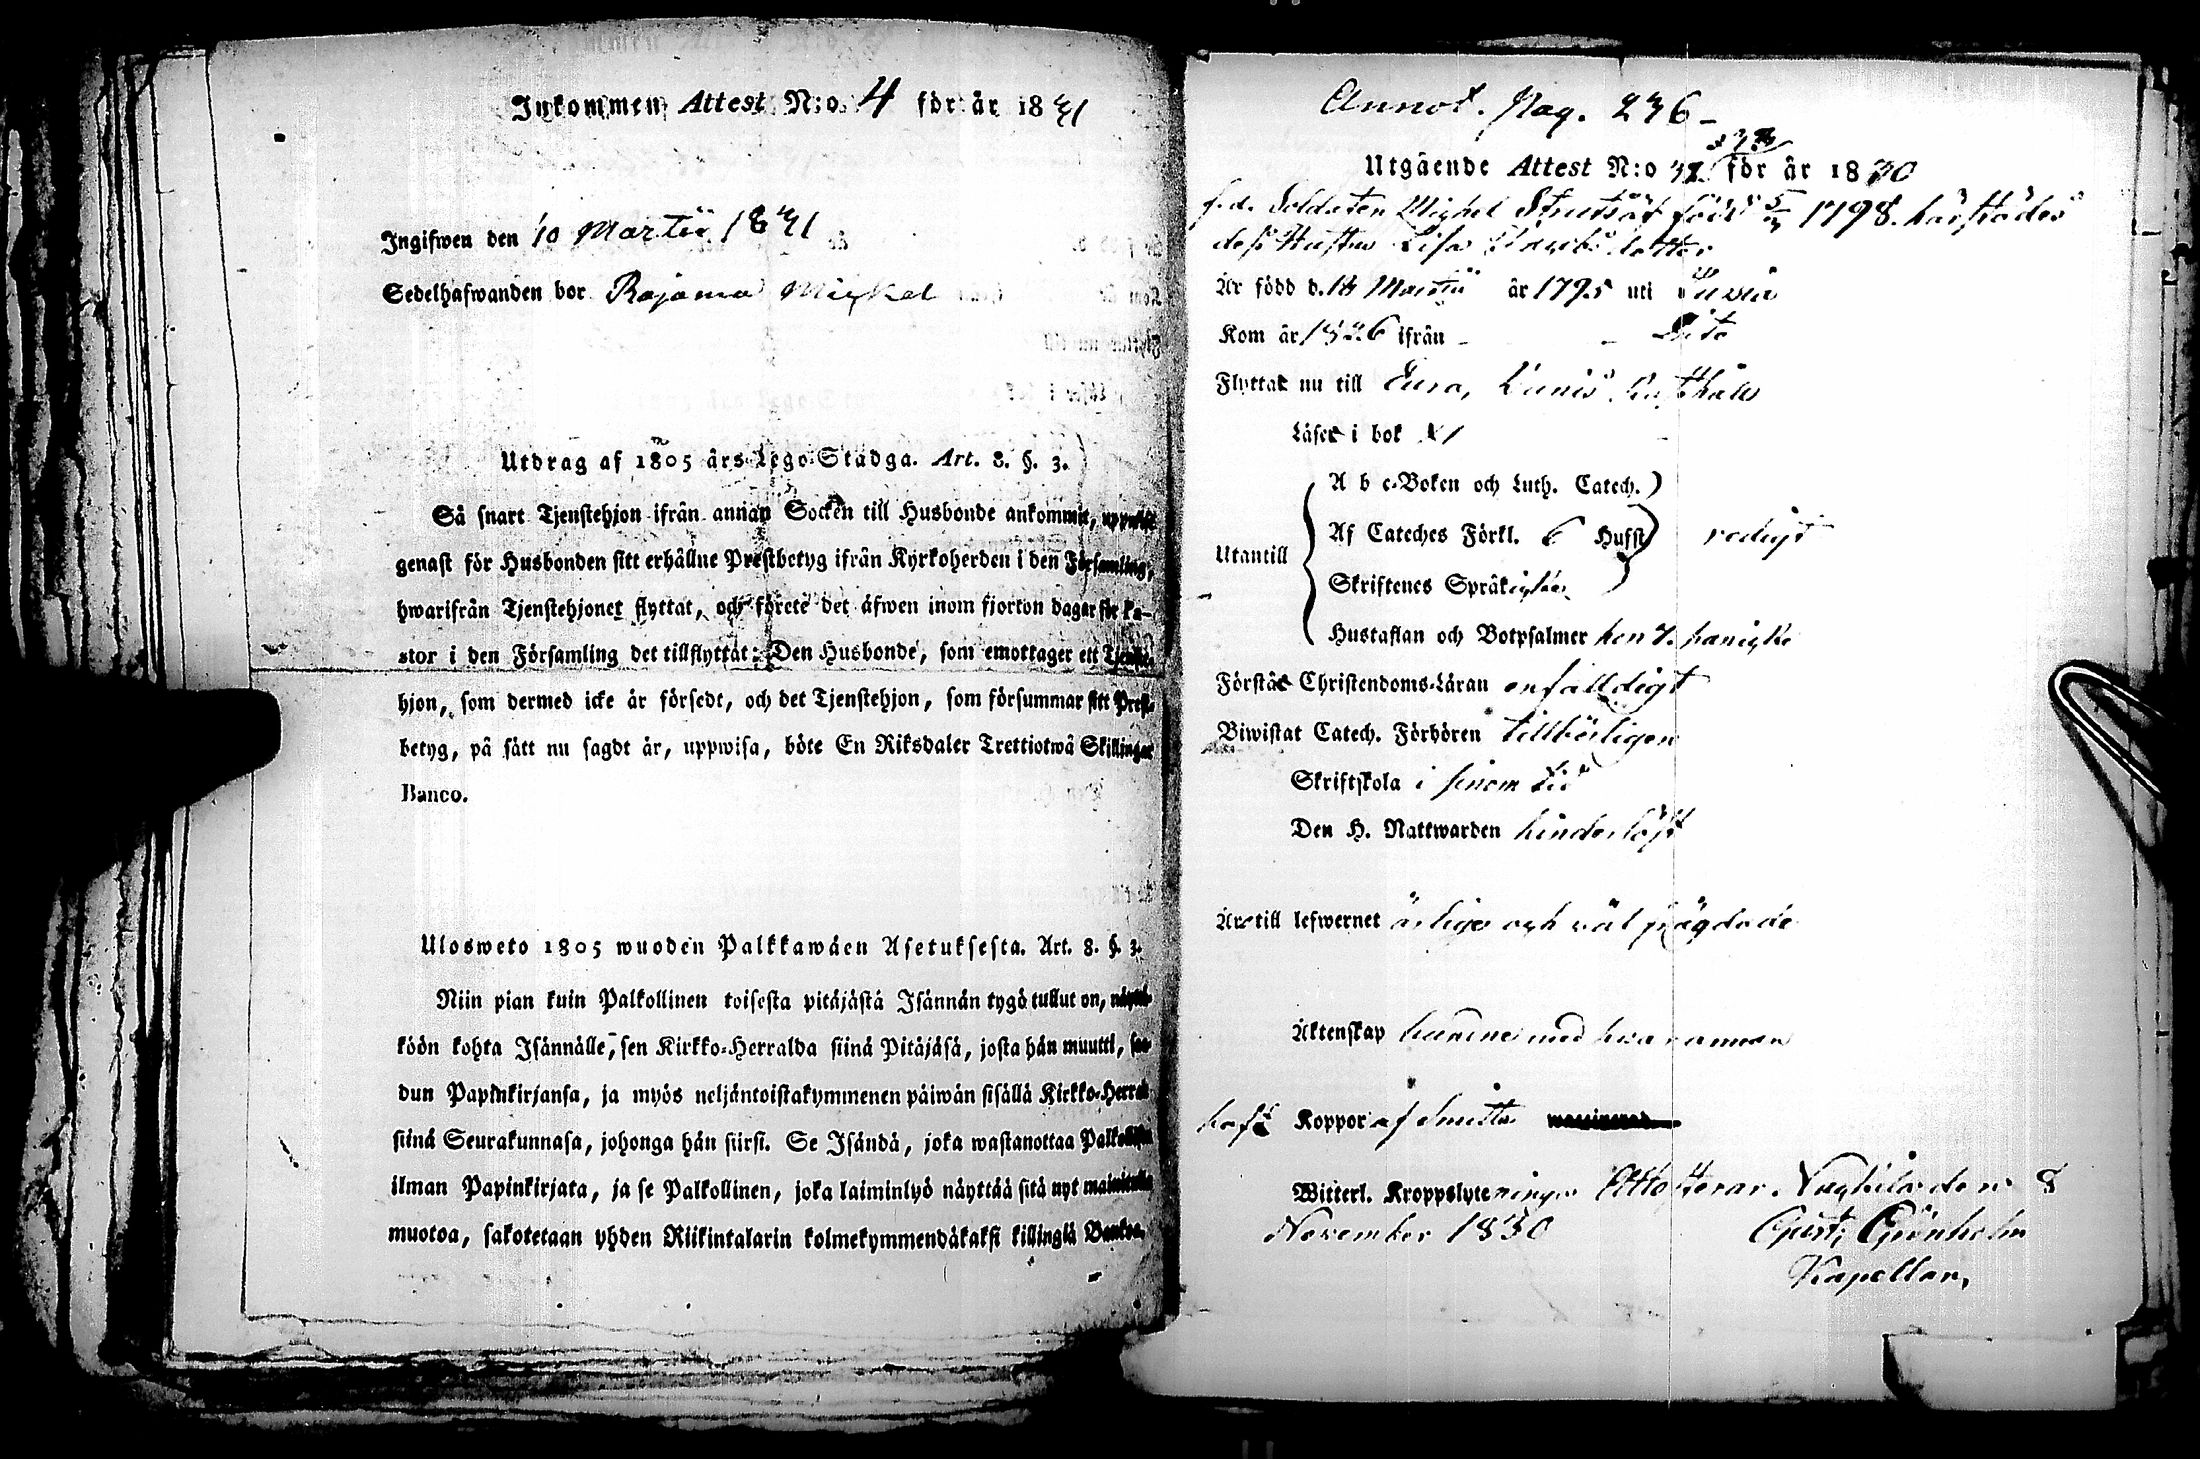 Inkommen Attest N:o 4 för år 1831
Ingifwen den 10 Martii 1831
Sedelhafwanden bor Rajama Michel
Utdrag af 1805 års Lego-Stadga. Art. 8. §. 3.
Så snart Tjenstehjon ifrån annan Socken till Husbonde ankommit, uppwise
genast för Husbonden sitt erhållne Prestbetyg ifrån Kyrkoherden i den Församling,
hwarifrån Tjenstehjonet flyttat, och förete det äfwen inom fjorton dagar för Pa-
stor i den Församling det tillflyttat: Den Husbonde, som emottager ett Tjenste-
hjon, som dermed icke är försedt, och det Tjenstehjon, som försummar sitt Prest-
betyg, på sätt nu sagdt är, uppwisa, böte En Riksdaler Trettiotwå Skillingar
Banco.
Ulosweto 1805 wuoden Palkkawäen Asetuksesta. Art. 8. §. 3.
Niin pian kuin Palkollinen toisesta pitäjästä Isännän tygö tullut on, näyttä-
köön kohta Isännälle, sen Kirkko-Herralda siinä Pitäjäsä, josta hän muutti, saa-
dun Papinkirjansa, ja myös neljäntoistakymmenen päiwän sisällä Kirkko-Herral
siinä Seurakunnasa, johonga hän siirsi. Se Isändä, joka wastanottaa Palkollisen
ilman Papinkirjata, ja se Palkollinen, joka laiminlyö näyttää sitä nyt mainitulla
muotoa, sakotetaan yhden Riikintalarin kolmekymmendäkaksi killingiä Bankoa.
Annot. Pag. 236
Utgående Attest N:o 32 för år 1830
f. d. Soldaten Michel född 1798. härstädes
dess Hustru Lisa
Är född d. 18 Martii år 1795 uti
Kom år 1826 ifrån - - Dito
Flyttat nu till Eura,
Läser i bok
A b c-Boken och Luth. Catech.
Utantill
Af Cateches Förkl. 6 Hufst redigt
Skriftenes Språk
Hustaflan och Botpsalmer
Förstår Christendoms-Läran enfalldigt
Biwistat Catech. Förhören tillbörligen
Skriftskola i sinom tid
Den H. Nattwarden hinderlöst
Äre till lefwernet ärlige och väl frägdade
Äktenskap hwarannan
haft Koppor af Smitta
Witterl. Kroppslyte Attesterar. Nykilä den 8
November 1830 Gust. Grönholm
Kapellan.